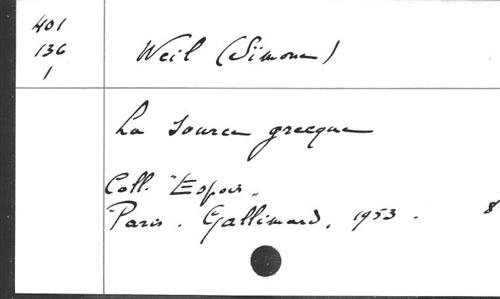 401
136
1
Weil (Simone)
La Source grecque
Coll. "Espoir"
Paris. Gallimard, 1953. 8